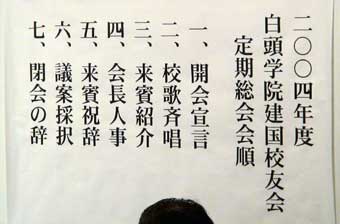 二〇〇四年度
白頭学院建国校友会
定期総会会順
一、開会宣言
二、校歌斉唱
三、来賓紹介
四、会長人事
五、来賓祝辞
六、議案採択
七、閉会の辞